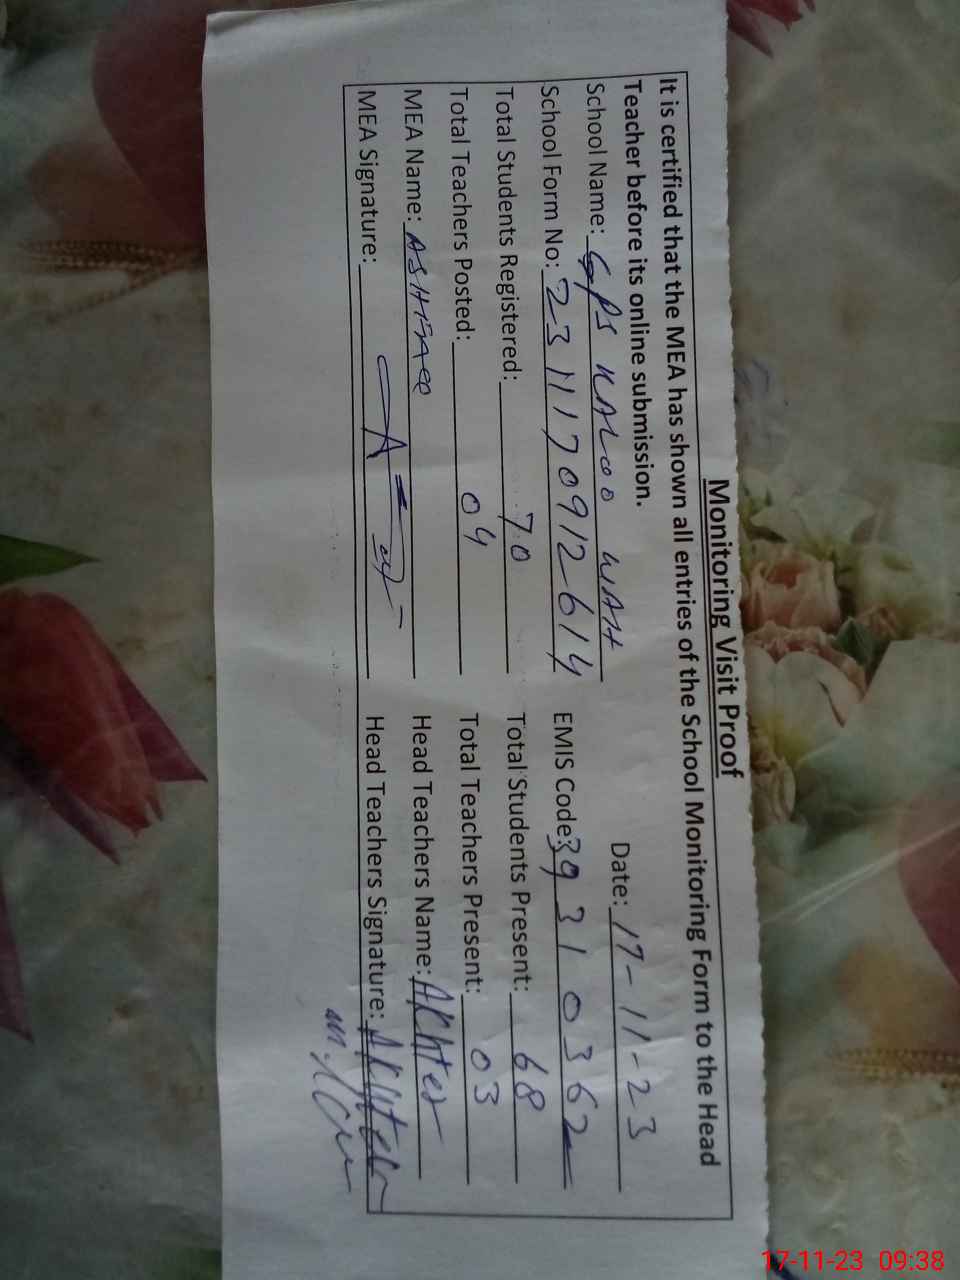 Monitoring Visit Proof
It is certified that the MEA has shown all entries of the School Monitoring Form to the Head
Teacher before its online submission.
Date: 17-11-23
School Name: GPS KALOO WAH
School Form No: 2311170912614 EMIS Code: 39310362
Total Students Registered: 70 Total Students Present: 68
Total Teachers Posted: 04 Total Teachers Present: 03
MEA Name: Head Teachers Name: AKhter
MEA Signature: Head Teachers Signature: AKhter
17-11-23 09:38